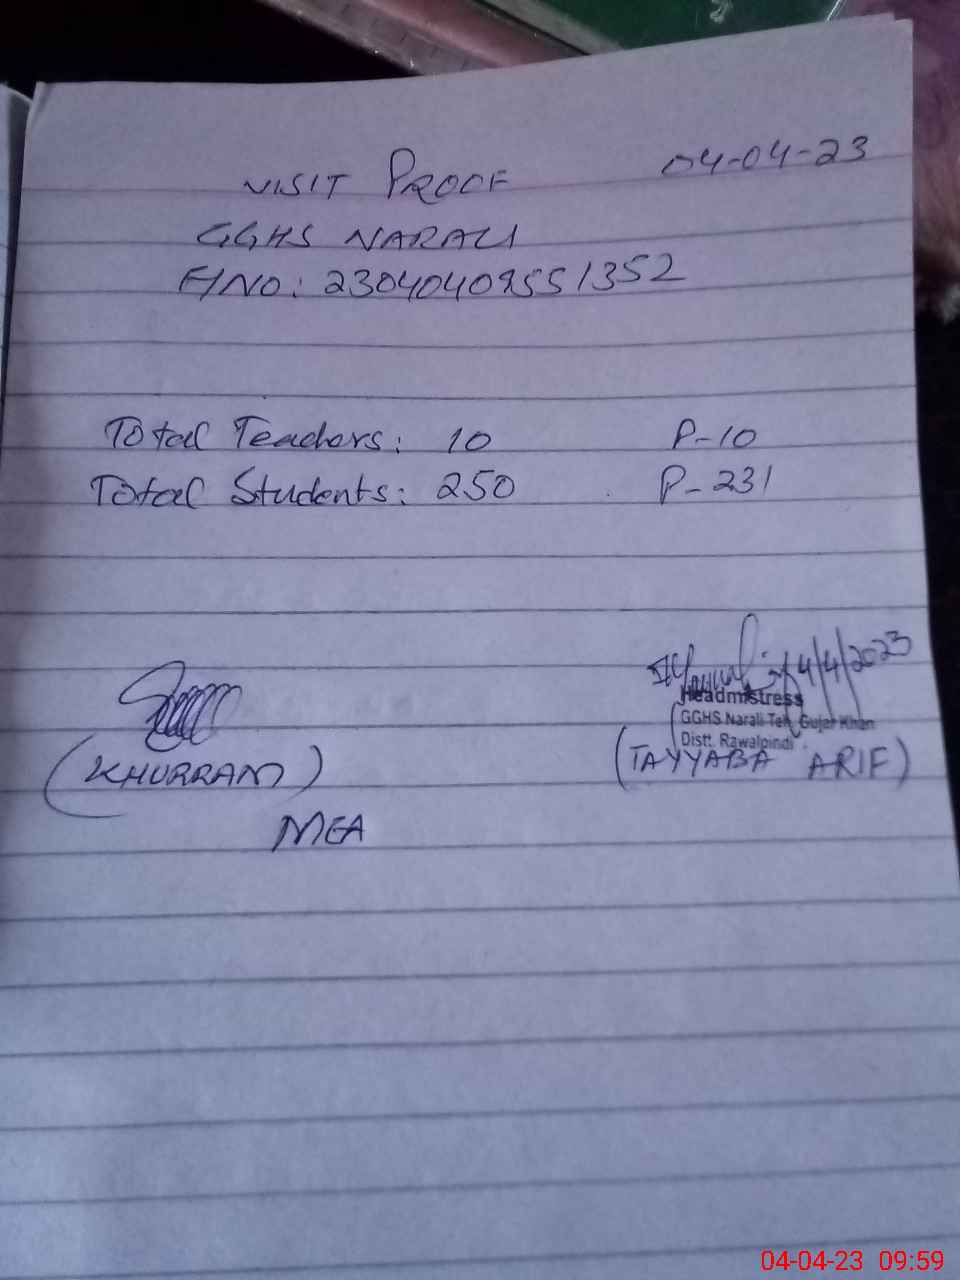 VISIT PROOF 04-04-23
GGHS NARALI
F/NO: 23040409551352
Total Teachers: 10 P-10
Total Students: 250 P-231
4/4/2023
Headmistress
GGHS Narali Teh. Gujar Khan
Distt. Rawalpindi
(KHURRAM) (TAYYABA ARIF)
MEA
04-04-23 09:59